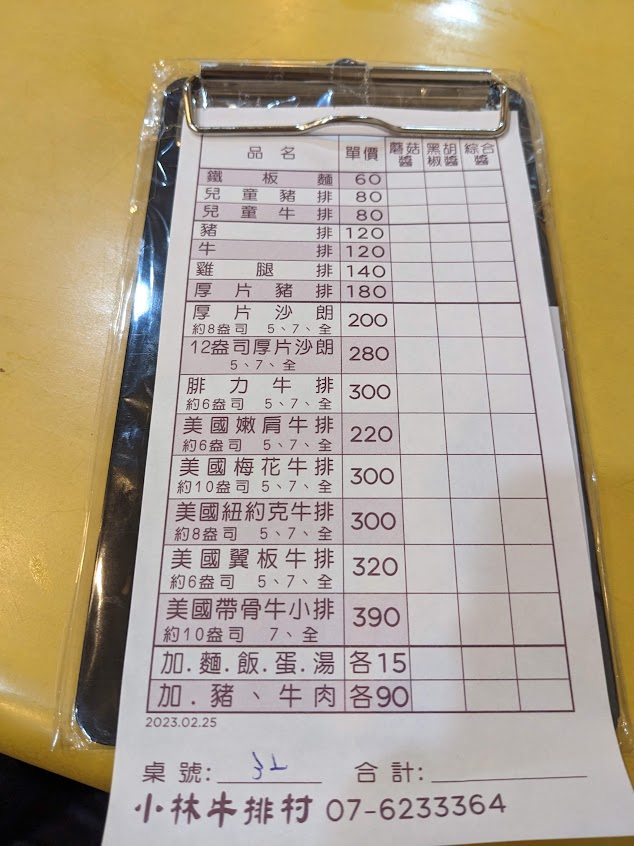 品名 單價 蘑菇醬 黑胡椒醬 綜合醬
鐵板麵 60
兒童豬排 80
兒童牛排 80
豬排 120
牛排 120
雞腿排 140
厚片豬排 180
厚片沙朗 200
約8盎司 5、7、全
12盎司厚片沙朗 280
5、7、全
腓力牛排 300
約6盎司 5、7、全
美國嫩肩牛排 220
約6盎司 5、7、全
美國梅花牛排 300
約10盎司 5、7、全
美國紐約克牛排 300
約8盎司 5、7、全
美國翼板牛排 320
約6盎司 5、7、全
美國帶骨牛小排 390
約10盎司 7、全
加.麵.飯.蛋.湯 各15
加.豬、牛肉 各90
2023.02.25
桌號: 合計:
小林牛排村 07-6233364